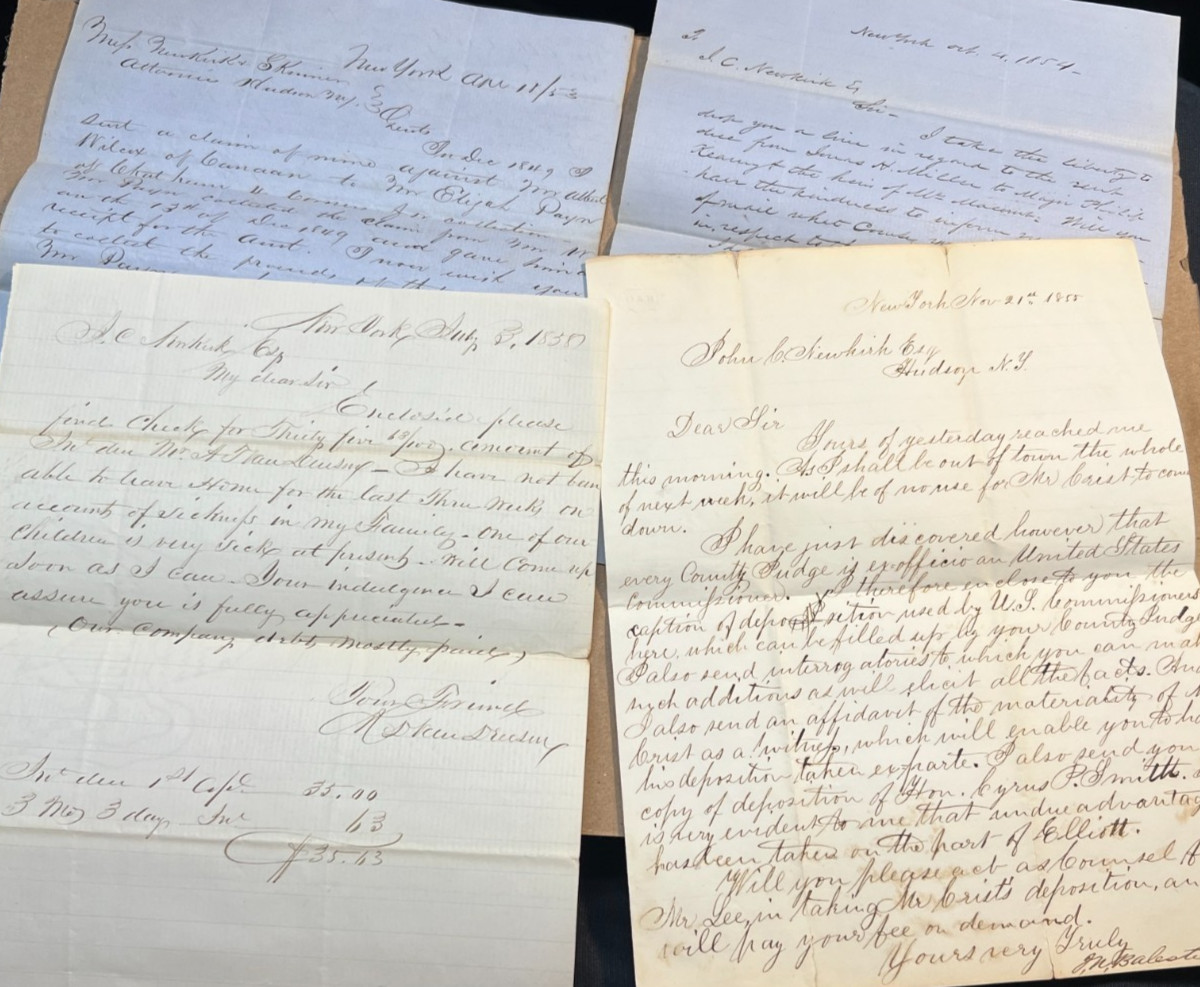 New York Apl 11/53
Messrs Newkirk & Skinner
Attornies Hudson N.Y.
Gents
In Dec 1849 I
sent a claim of mine against Mr
Wilcox of Canaan to Mr Elijah Payn
of Chatham 4 Corners for collection
Mr Payn collected the claim from Mr W
on the 13th of Dec 1849 and gave him a
receipt for the amt. I now wish you
to collect the proceeds of
Mr Payn
New York Oct. 4, 1854
To
J. C. Newkirk Esq
Sir - I take the liberty to
drop you a line in regard to the rent
due from James H. Miller to Major Phil.
Kearny & the heirs of Mr. Macomb. Will you
have the kindness to inform me
by mail what course
in respect to
New York July 3, 1858
J. C. Newkirk Esq
My dear Sir
Enclosed please
find Check for Thirty five 63/100, amount of
Int due Mr A Van Deusen - I have not been
able to leave Home for the last Three weeks on
account of sickness in my Family - One of our
Children is very sick at present - Will Come up
soon as I can - Your indulgence I can
assure you is fully appreciated -
(Our Company debts mostly paid,)
Your Friend
Van Deusen
Int due 1st 35.00
3 Mos 3 days Int 63
$35.63
New York Nov 21st 1855
John C. Newkirk Esq
Hudson N.Y.
Dear Sir
Yours of yesterday reached me
this morning. As I shall be out of town the whole
of next week, it will be of no use for Mr Crist to come
down.
I have just discovered however that
every County Judge is ex officio an United States
commissioner. I therefore enclose to you the
caption of deposition used by U.S. Commissioners
here, which can be filled up by your County Judge
I also send interrogatories to which you can make
such additions as will elicit all the facts. And
I also send an affidavit of the materiality of Mr
Crist as a witness, which will enable you to have
his deposition taken ex parte. I also send you
copy of deposition of Hon. Cyrus P. Smith.
is very evident to me that undue advantage
has been taken on the part of Elliott.
Will you please act as Counsel for
Mr Lee, in taking Mr Crist's deposition, and
will pay your fee on demand.
Yours very Truly
J.N. Balestier